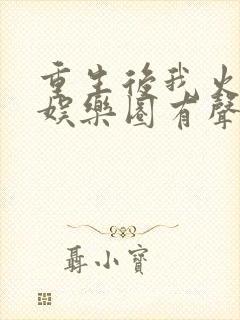 重生後我火
娛樂圈有聲
聶小寶